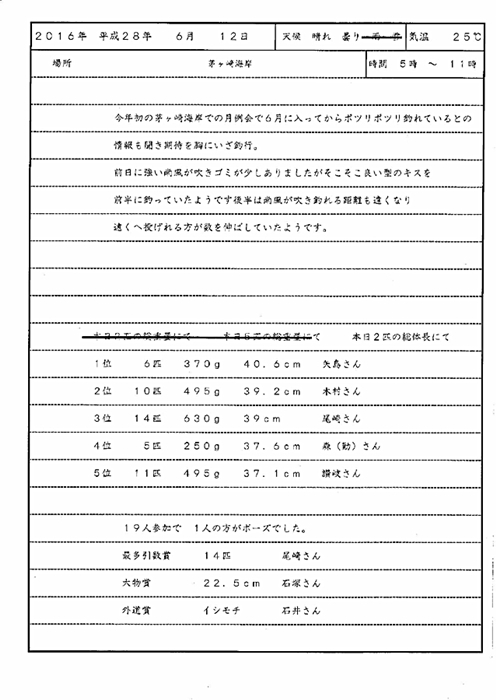 2016年 平成28年 6月 12日 天候 晴れ 曇り 雨 気温 25℃
場所 茅ヶ崎海岸 時間 5時 ～ 11時
今年初の茅ヶ崎海岸での月例会で6月に入ってからポツリポツリ釣れているとの
情報も聞き期待を胸にいざ釣行。
前日に強い南風が吹きゴミが少しありましたがそこそこ良い型のキスを
前半に釣っていたようです後半は南風が吹き釣れる距離も遠くなり
遠くへ投げれる方が数を伸ばしていたようです。
の総重量にて 本日5匹の総重量にて 本日2匹の総体長にて
1位 6匹 370g 40.6cm 矢島さん
2位 10匹 495g 39.2cm 木村さん
3位 14匹 630g 39cm 尾崎さん
4位 5匹 250g 37.6cm 森(勤)さん
5位 11匹 495g 37.1cm 讃岐さん
19人参加で 1人の方がボーズでした。
最多引数賞 14匹 尾崎さん
大物賞 22.5cm 石塚さん
外道賞 イシモチ 石井さん